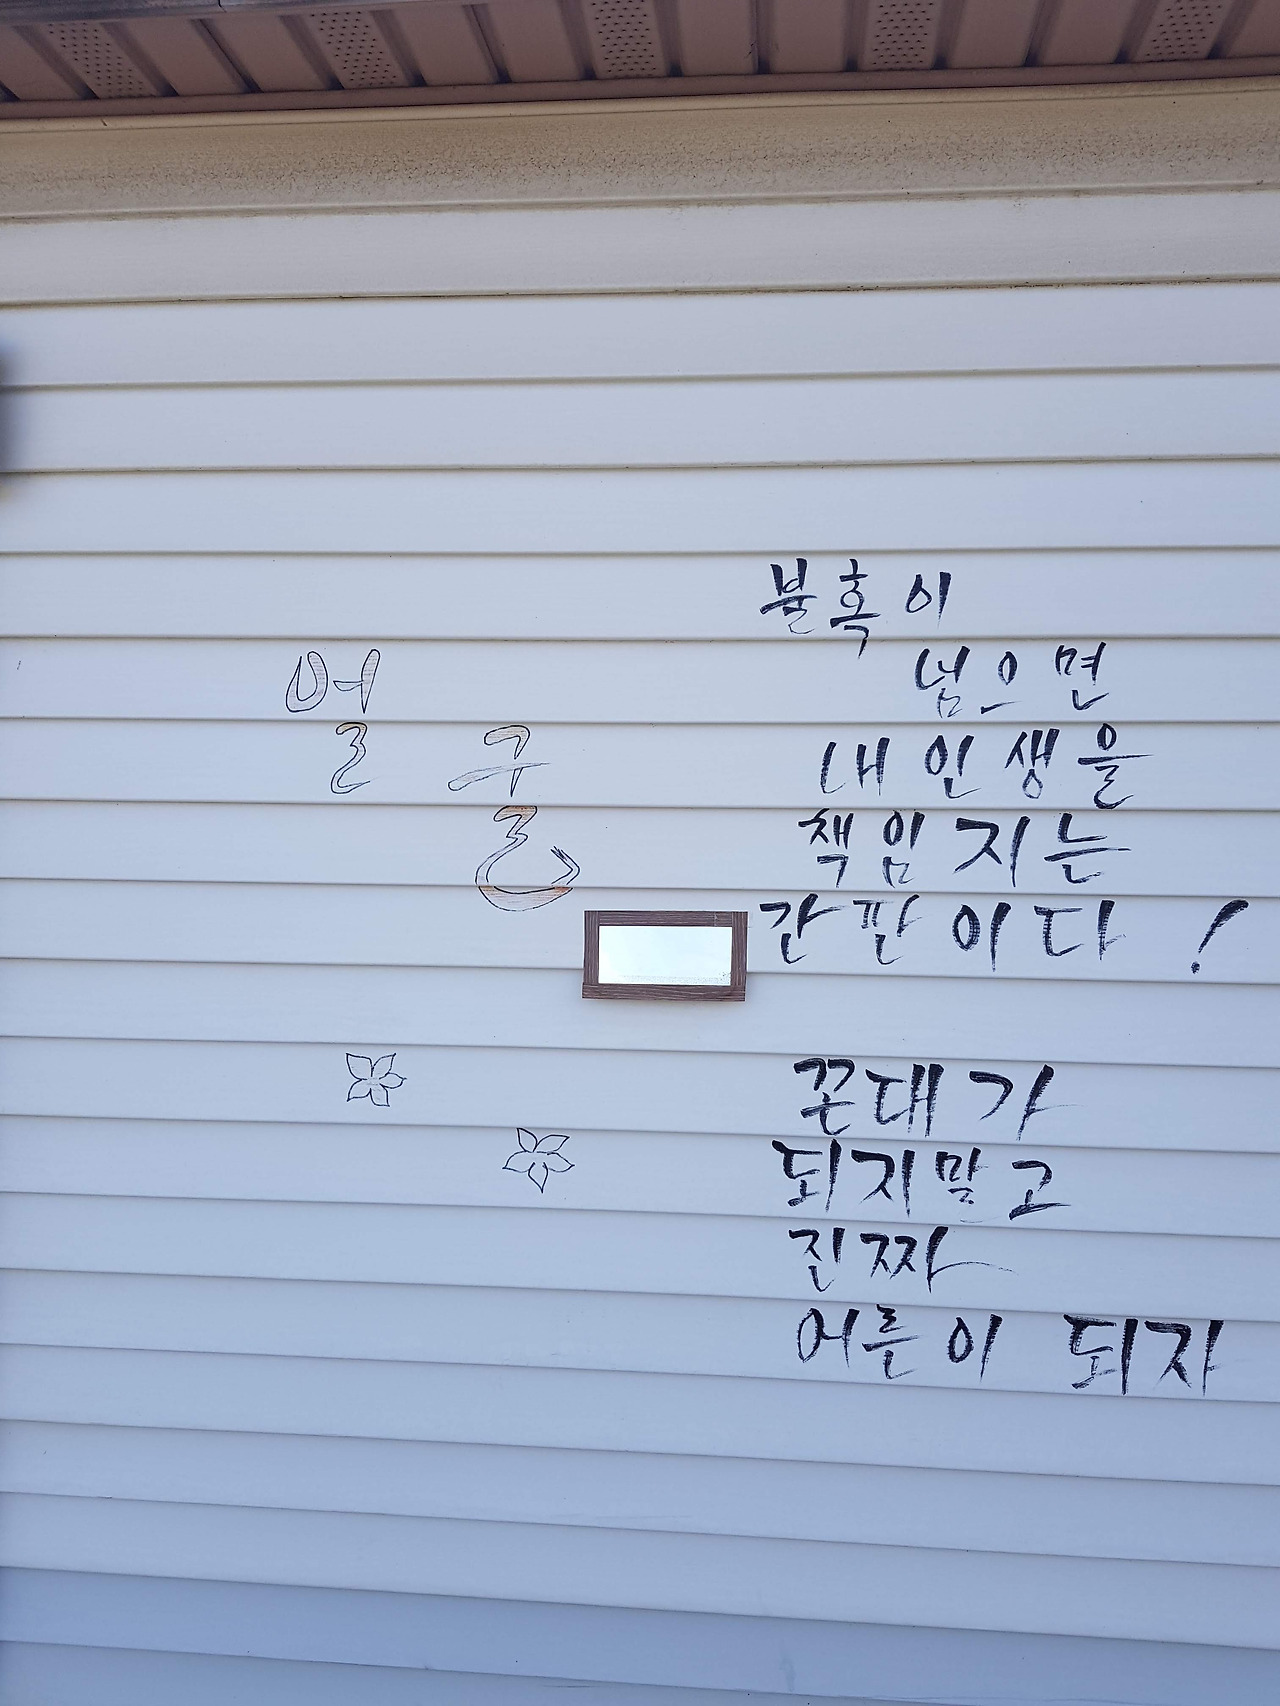 얼굴은
불혹이
넘으면
내 인생을
책임지는
간판이다!
꼰대가
되지말고
진짜
어른이 되자